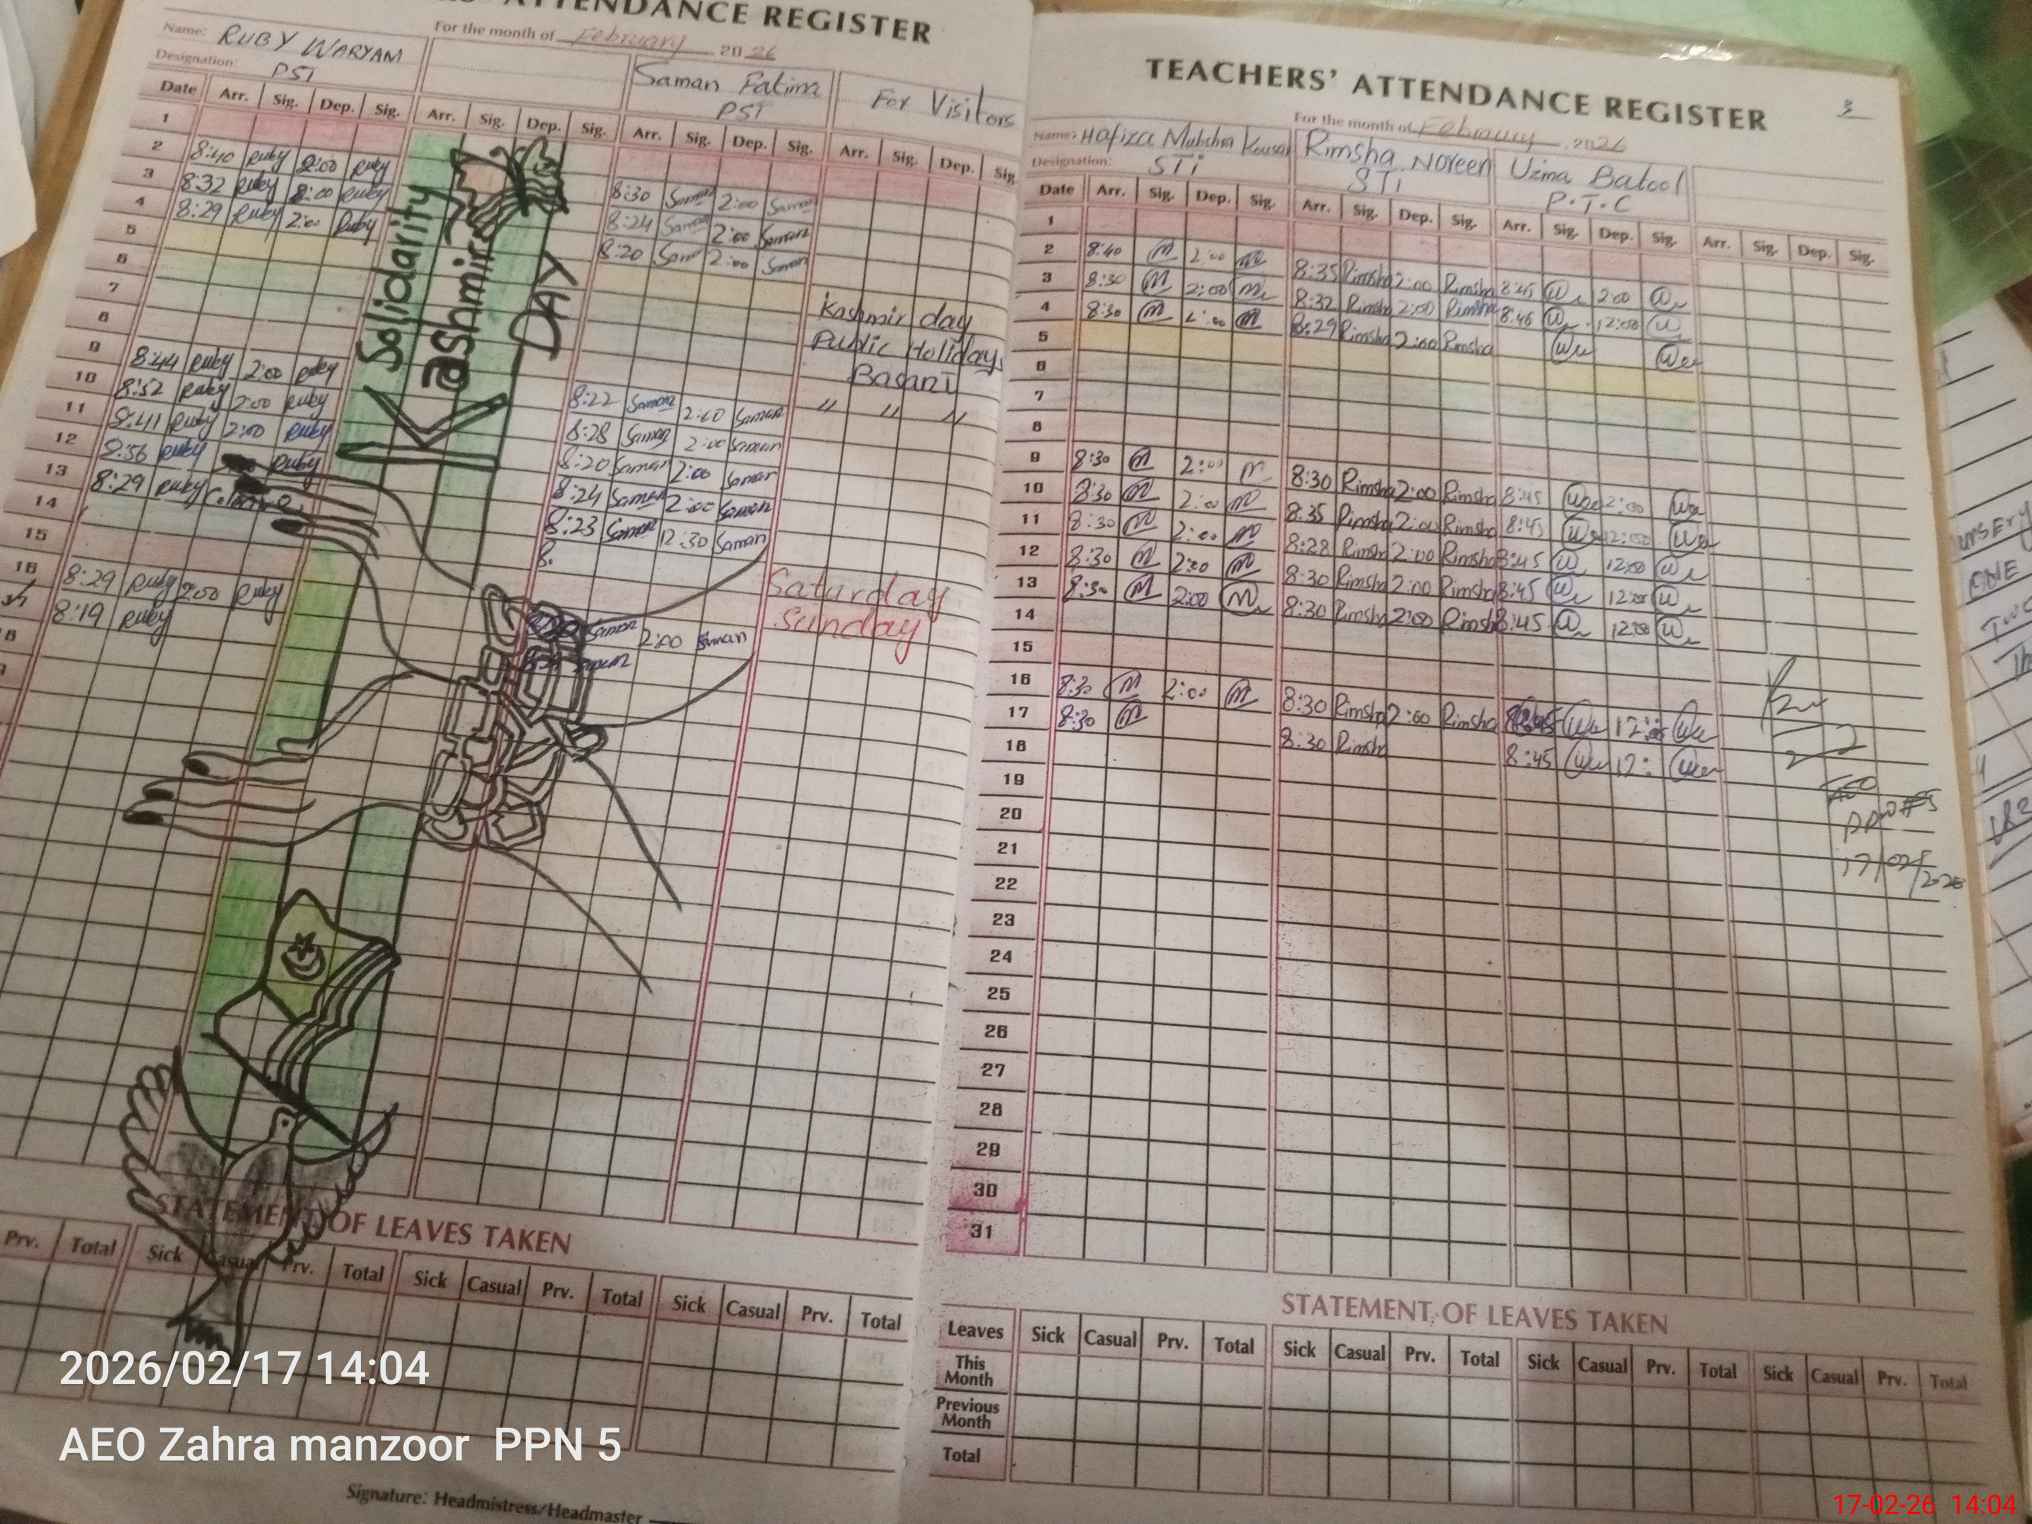 ATTENDANCE REGISTER
For the month of February 2026
Name: RUBY WARYAM
Designation: PST
Saman Fatima
PST
For Visitors
Date Arr. Sig. Dep. Sig. Arr. Sig. Dep. Sig. Arr. Sig. Dep. Sig. Arr. Sig. Dep. Sig
1
2 8:40 Ruby 2:00 Ruby 8:30 Saman 2:00 Saman
3 8:32 Ruby 2:00 Ruby 8:24 Saman 2:00 Saman
4 8:29 Ruby 2:00 Ruby 8:20 Saman 2:00 Saman
5
6
7
8
9 8:44 Ruby 2:00 Ruby 8:22 Saman 2:00 Saman
10 8:52 Ruby 2:00 Ruby 8:28 Saman 2:00 Saman
11 8:41 Ruby 2:00 Ruby 8:20 Saman 2:00 Saman
12 8:36 Ruby Ruby 8:24 Saman 2:00 Saman
13 8:29 Ruby 8:23 Saman 12:30 Saman
14 8.
15
16 8:29 Ruby 2:00 Ruby Saman 2:00 Saman
17 8:19 Ruby Saman
18
Solidarity
Kashmir
DAY
Kashmir day
Public Holidays
Basant
" " "
Saturday
Sunday
STATEMENT OF LEAVES TAKEN
Prv. Total Sick Casual Prv. Total Sick Casual Prv. Total Sick Casual Prv. Total
Signature: Headmistress/Headmaster
TEACHERS' ATTENDANCE REGISTER
3
For the month of February 2026
Name: Hafiza Mubshra Kousar Rimsha Noreen Uzma Batool
Designation: STi STi P.T.C
Date Arr. Sig. Dep. Sig. Arr. Sig. Dep. Sig. Arr. Sig. Dep. Sig. Arr. Sig. Dep. Sig.
1
2 8:40 M 2:00 M 8:35 Rimsha 2:00 Rimsha 8:45 2:00
3 8:30 M 2:00 M 8:32 Rimsha 2:00 Rimsha 8:46 12:00
4 8:30 M 2:00 M 8:29 Rimsha 2:00 Rimsha
5
6
7
8
9 8:30 M 2:00 M 8:30 Rimsha 2:00 Rimsha 8:45 2:00
10 8:30 M 2:00 M 8:35 Rimsha 2:00 Rimsha 8:45 12:00
11 8:30 M 2:00 M 8:28 Rimsha 2:00 Rimsha 8:45 12:00
12 8:30 M 2:00 M 8:30 Rimsha 2:00 Rimsha 8:45 12:00
13 8:30 M 2:00 M 8:30 Rimsha 2:00 Rimsha 8:45 12:00
14
15
16 8:30 M 2:00 M 8:30 Rimsha 2:00 Rimsha 12:00
17 8:30 M 8:30 Rimsha 8:45 12:
18
19
20
21
22
23
24
25
26
27
28
29
30
31
17/02/2026
STATEMENT OF LEAVES TAKEN
Leaves Sick Casual Prv. Total Sick Casual Prv. Total Sick Casual Prv. Total Sick Casual Prv. Total
This Month
Previous Month
Total
2026/02/17 14:04
AEO Zahra manzoor PPN 5
17-02-26 14:04